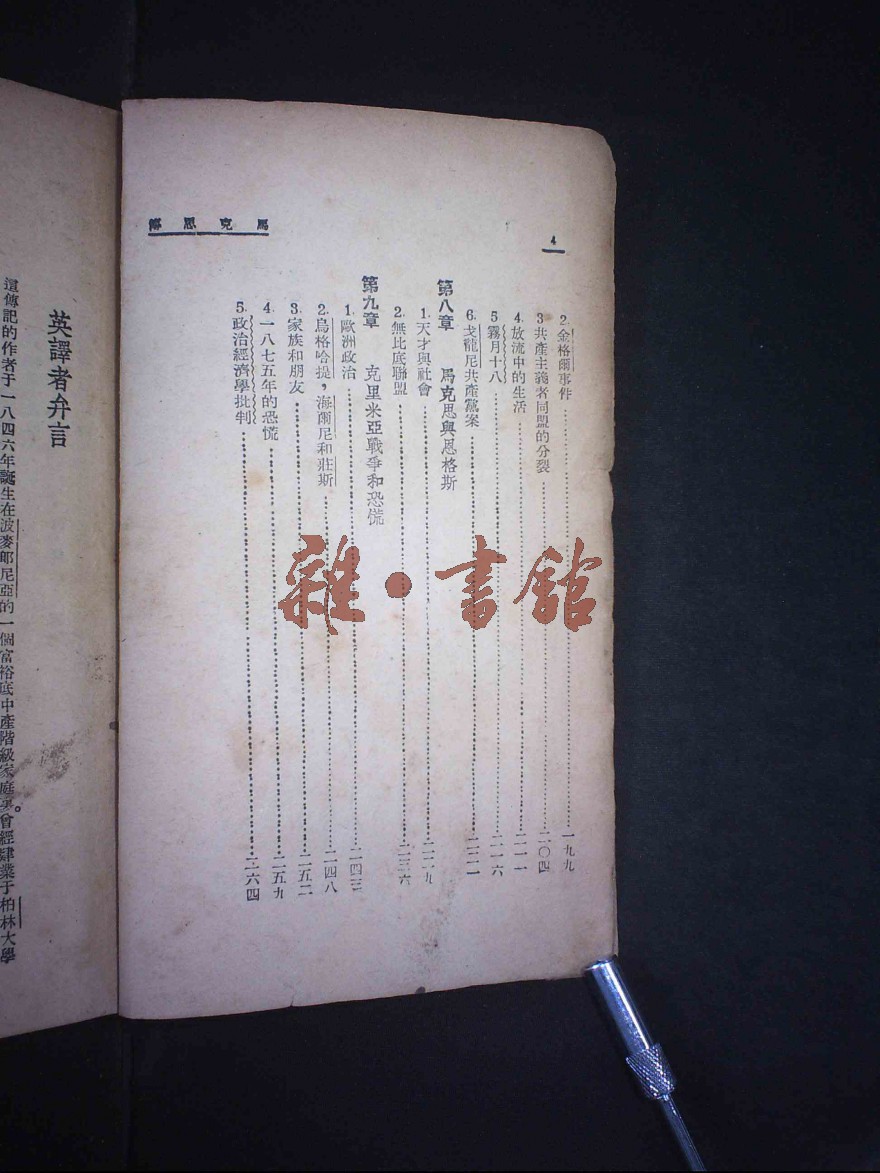 4
馬克思傳
2. 金格爾事件………一九九
3 共產主義者同盟的分裂………二〇四
4. 放流中的生活………二一一
5 霧月十八………二一六
6. 戈龍尼共產黨案………二二一
第八章 馬克思與恩格斯
1. 天才與社會………二二九
2. 無比底聯盟………二三六
第九章 克里米亞戰爭和恐慌
1. 歐洲政治………二四三
2. 烏格哈提，海爾尼和莊斯………二四八
3. 家族和朋友………二五二
4. 一八七五年的恐慌………二五九
5. 政治經濟學批判………二六四
英譯者弁言
這傳記的作者于一八四六年誕生在波麥郎尼亞的一個富裕底中產階級家庭。曾經肄業于柏林大學
雜·書館